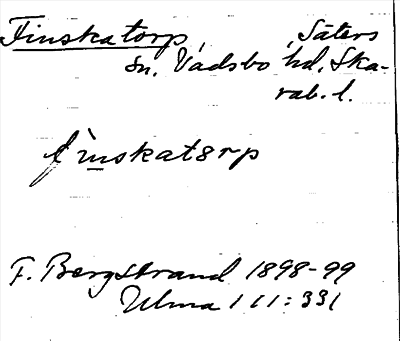 Finskatorp, Säters
sn. Vadsbo hd. Ska-
rab. l.
fìnskatɵrp
F. Bergstrand 1898-99
Ulma 111:331